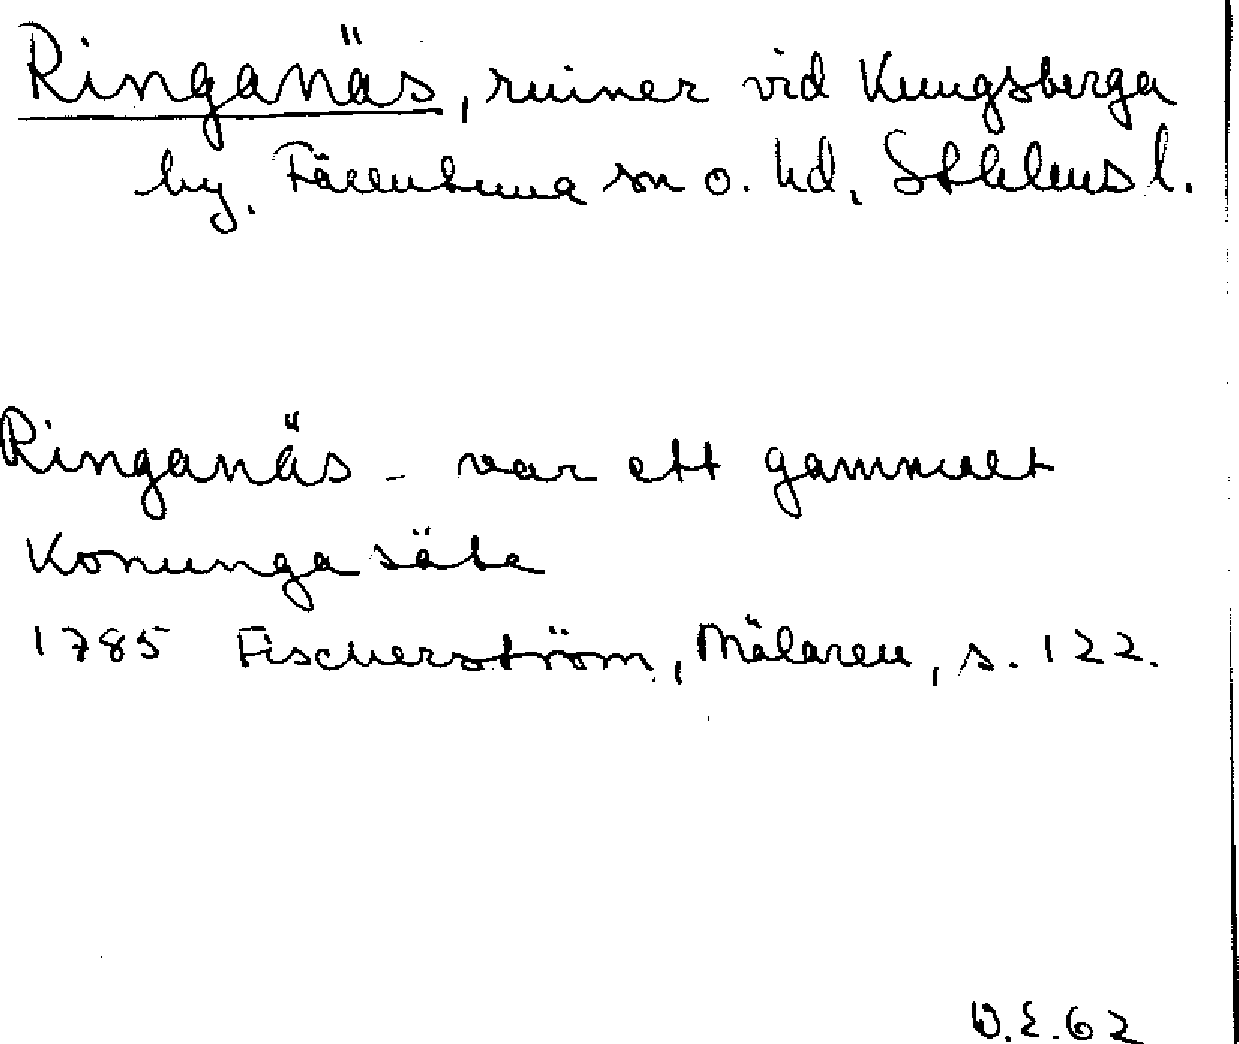 Ringanäs, ruiner vid Kungsberga
by, Färentuna sn o. hd, Sthlms l.
Ringanäs - var ett gammalt
Konunga säte
1785 Fischerström, Mälaren, s. 122.
W.E.62